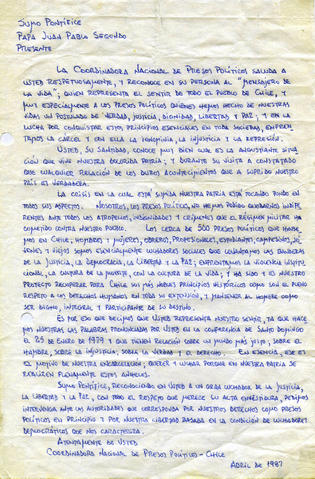 SUMO PONTÍFICE
PAPA JUAN PABLO SEGUNDO
PRESENTE
LA COORDINADORA NACIONAL DE PRESOS POLÍTICOS SALUDA A
USTED RESPETUOSAMENTE, Y RECONOCE EN SU PERSONA AL "MENSAJERO DE
LA VIDA", QUIEN REPRESENTA EL SENTIR DE TODO EL PUEBLO DE CHILE, Y
MUY ESPECIALMENTE A LOS PRESOS POLÍTICOS QUIENES HEMOS HECHO DE NUESTRAS
VIDAS UN POSTULADO DE VERDAD, JUSTICIA, DIGNIDAD, LIBERTAD Y PAZ, Y EN LA
LUCHA POR CONQUISTAR ESTOS PRINCIPIOS ESENCIALES EN TODA SOCIEDAD,
LA CÁRCEL Y CON ELLA LA IGNOMINIA, LA INJUSTICIA Y LA REPRESIÓN.
USTED, SU SANTIDAD, CONOCE MUY BIEN CUAL ES LA ANGUSTIANTE SITUA
CIÓN QUE VIVE NUESTRA DOLORIDA PATRIA; Y DURANTE SU VISITA A CONSTATADO
QUE CUALQUIER RELACIÓN DE LOS DUROS ACONTECIMIENTOS QUE A SUFRIDO NUESTRO
PAÍS ES VERDADERA.
LA CRISIS EN LA CUAL ESTÁ SUMIDA NUESTRA PATRIA ESTÁ TOCANDO FONDO EN
TODOS SUS ASPECTOS. NOSOTROS, LOS PRESOS POLÍTICOS, NO HEMOS PODIDO QUEDARNOS INDIFE
RENTES ANTE TODOS LOS ATROPELLOS, Y CRÍMENES QUE EL RÉGIMEN MILITAR HA
COMETIDO CONTRA NUESTRO PUEBLO. LOS CERCA DE 500 PRESOS POLÍTICOS QUE HABE
MOS EN CHILE, HOMBRES Y MUJERES, OBREROS, PROFESIONALES, ESTUDIANTES, CAMPESINOS, JÓ
VENES Y VIEJOS SOMOS ESENCIALMENTE LUCHADORES SOCIALES QUE LAS BANDERAS
DE LA JUSTICIA, LA DEMOCRACIA, LA LIBERTAD Y LA PAZ; ENFRENTAMOS LA VIOLENCIA INSTITU
CIONAL, LA CULTURA DE LA MUERTE, CON LA CULTURA DE LA VIDA; Y HA SIDO Y ES NUESTRO
PROYECTO RECUPERAR PARA CHILE SUS MÁS NOBLES PRINCIPIOS HISTÓRICOS COMO SON EL PLENO
RESPETO A LOS DERECHOS HUMANOS EN TODA SU EXTENSIÓN, Y MANTENER AL HOMBRE COMO
SER DIGNO, INTEGRAL Y PARTICIPANTE DE SU DESTINO.
ES POR ESO QUE DECIMOS QUE USTED REPRESENTA NUESTRO SENTIR, YA QUE HACE
MOS NUESTRAS LAS PALABRAS PRONUNCIADAS POR USTED EN LA CONFERENCIA DE SANTO DOMINGO
EL 25 DE ENERO DE 1979 Y QUE TIENEN RELACIÓN SOBRE UN MUNDO MÁS JUSTO, SOBRE EL
HOMBRE, SOBRE LA INJUSTICIA, SOBRE LA VERDAD Y EL DERECHO. EN ESENCIA, ESE ES
EL MOTIVO DE NUESTRA ENCARCELACIÓN; QUERER Y LUCHAR PORQUE EN NUESTRA PATRIA SE
REALICEN PLENAMENTE ESTOS ANHELOS.
SUMO PONTÍFICE, RECONOCIENDO EN USTED A UN GRAN LUCHADOR DE LA JUSTICIA,
LA LIBERTAD Y LA PAZ, CON TODO EL RESPETO QUE MERECE SU ALTA INVESTIDURA, PEDIMOS
INTERVENGA ANTE LAS AUTORIDADES QUE CORRESPONDA POR NUESTROS DERECHOS COMO PRESOS
POLÍTICOS EN PRINCIPIO Y POR NUESTRA LIBERTAD BASADA EN LA CONDICIÓN DE LUCHADORES
DEMOCRÁTICOS QUE NOS CARACTERIZA.
ATENTAMENTE DE USTED
COORDINADORA NACIONAL DE PRESOS POLÍTICOS - CHILE
ABRIL DE 1987